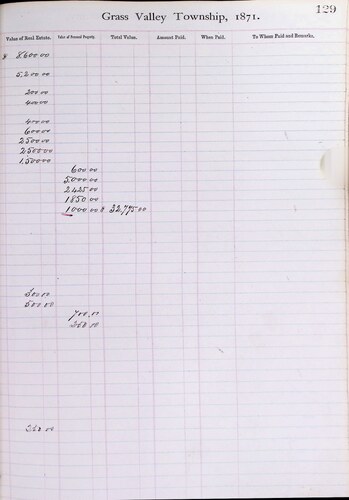 129
Grass Valley Township, 1871.
Value of Real Estate. Value of Personal Property. Total Value. Amount Paid. When Paid. To Whom Paid and Remarks.
$ 8,600 00
5,200 00
200 00
400 00
400 00
600 00
2500 00
2500 00
1,500 00
600 00
5,000 00
2425 00
1850 00
1000 00 $ 32,775 00
500 00
700 00